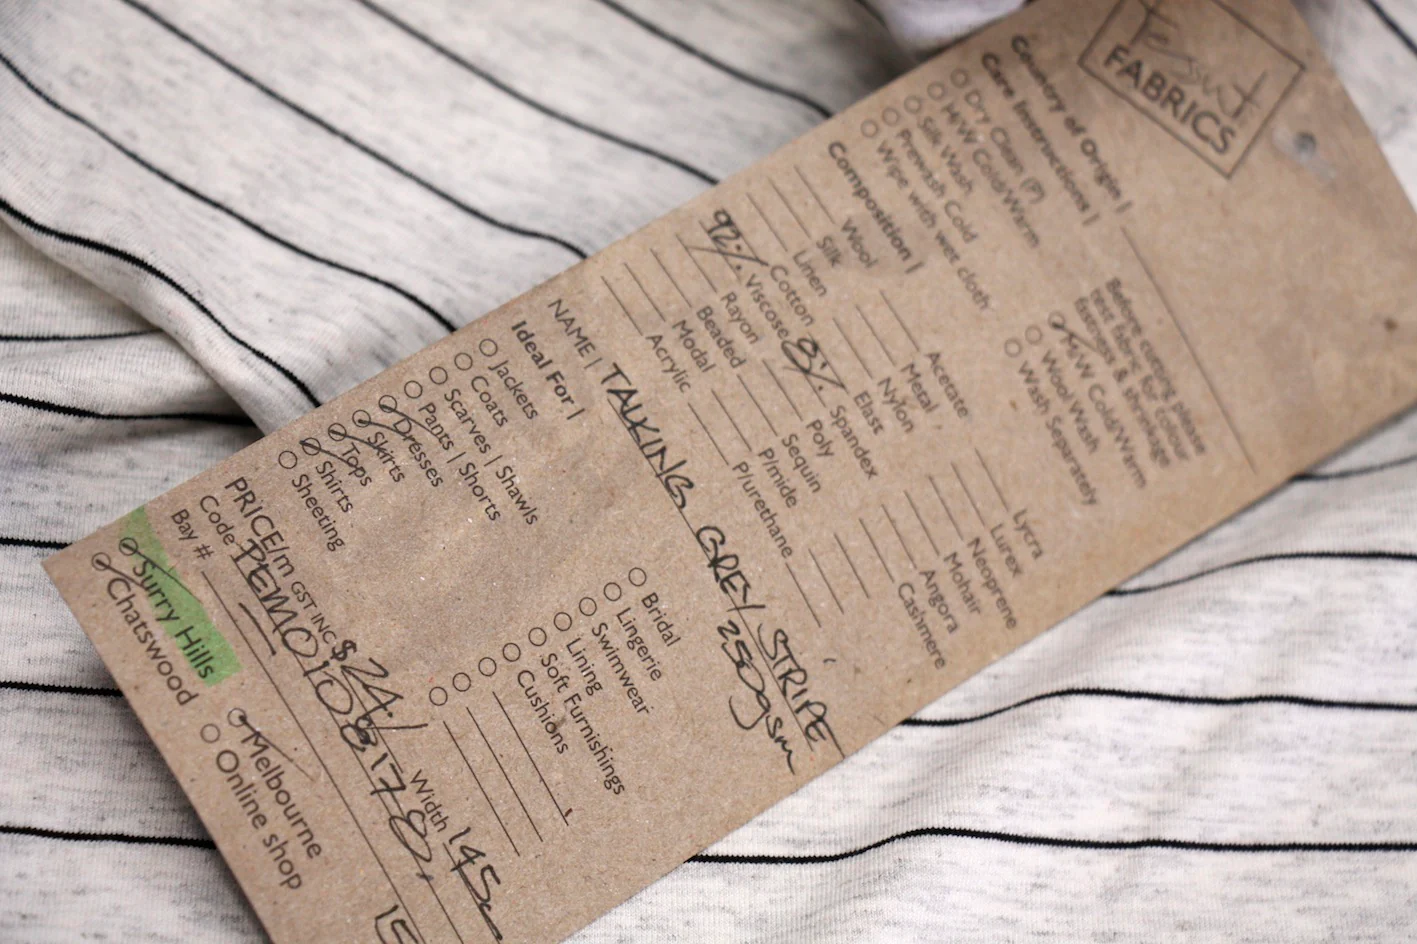 Tessuti
FABRICS
Country of Origin |
Care Instructions |
Dry Clean (P)
H/W Cold/Warm
Silk Wash
Prewash Cold
Wipe with wet cloth
Before cutting please
test fabric for colour
fastness & shrinkage
M/W Cold/Warm
Wool Wash
Wash Separately
Composition |
Wool
Silk
Linen
Cotton
92% Viscose
Rayon
Beaded
Modal
Acrylic
Acetate
Metal
Nylon
Elast
8% Spandex
Poly
Sequin
P/mide
P/urethane
Lycra
Lurex
Neoprene
Mohair
Angora
Cashmere
NAME | TALKING GREY STRIPE
250gsm
Ideal For |
Jackets
Coats
Scarves | Shawls
Pants | Shorts
Dresses
Skirts
Tops
Shirts
Sheeting
Bridal
Lingerie
Swimwear
Lining
Soft Furnishings
Cushions
PRICE/m GST INC $24./ Width 145
Code
Bay #
Surry Hills
Chatswood
Melbourne
Online shop